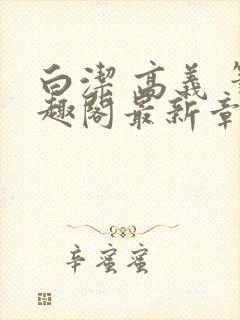 白潔 高義 
趣阁最新章
辛蜜蜜